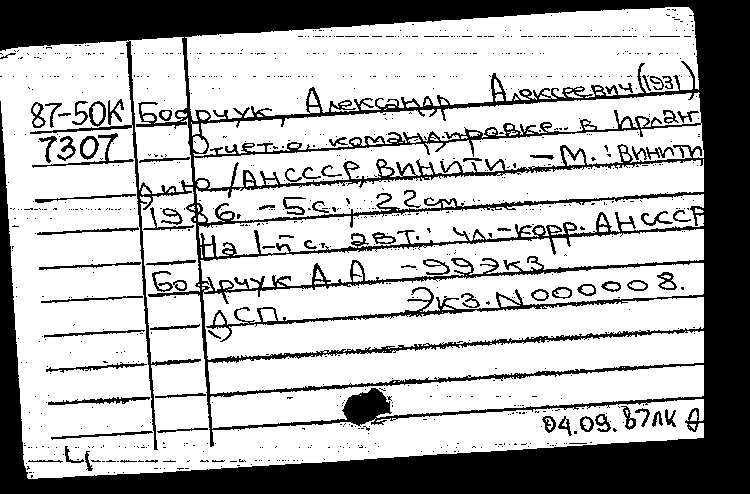 87-50К Боярчук, Александр Алексеевич (1931)
7307 Отчет о командировке в Ирлан
дию / АН СССР, ВИНИТИ. - М. : ВИНИТИ,
1986. - 5 с. ; 22 см.
На 1-й с. авт.: чл.-корр. АН СССР
Боярчук А.А. - 99 экз.
ДСП. Экз. N 000008.
04.09.87 ЛК Д
4